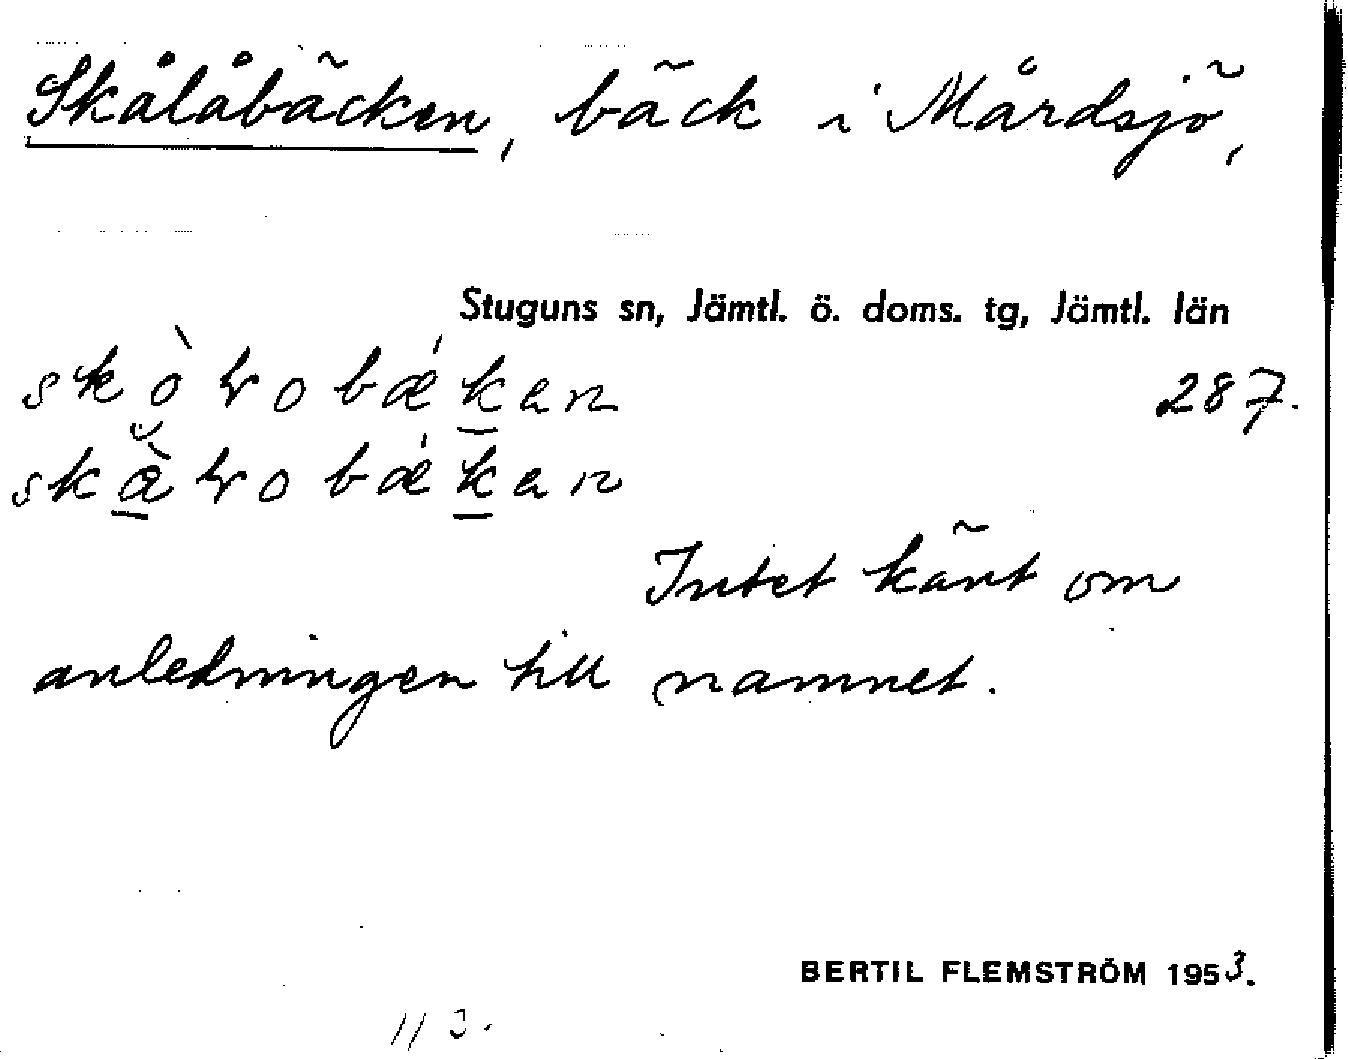 Skålåbäcken, bäck i Mårdsjö,
Stuguns sn, Jämtl. ö. doms. tg, Jämtl. län
287.
Intet känt om
anledningen till namnet.
BERTIL FLEMSTRÖM 1953.